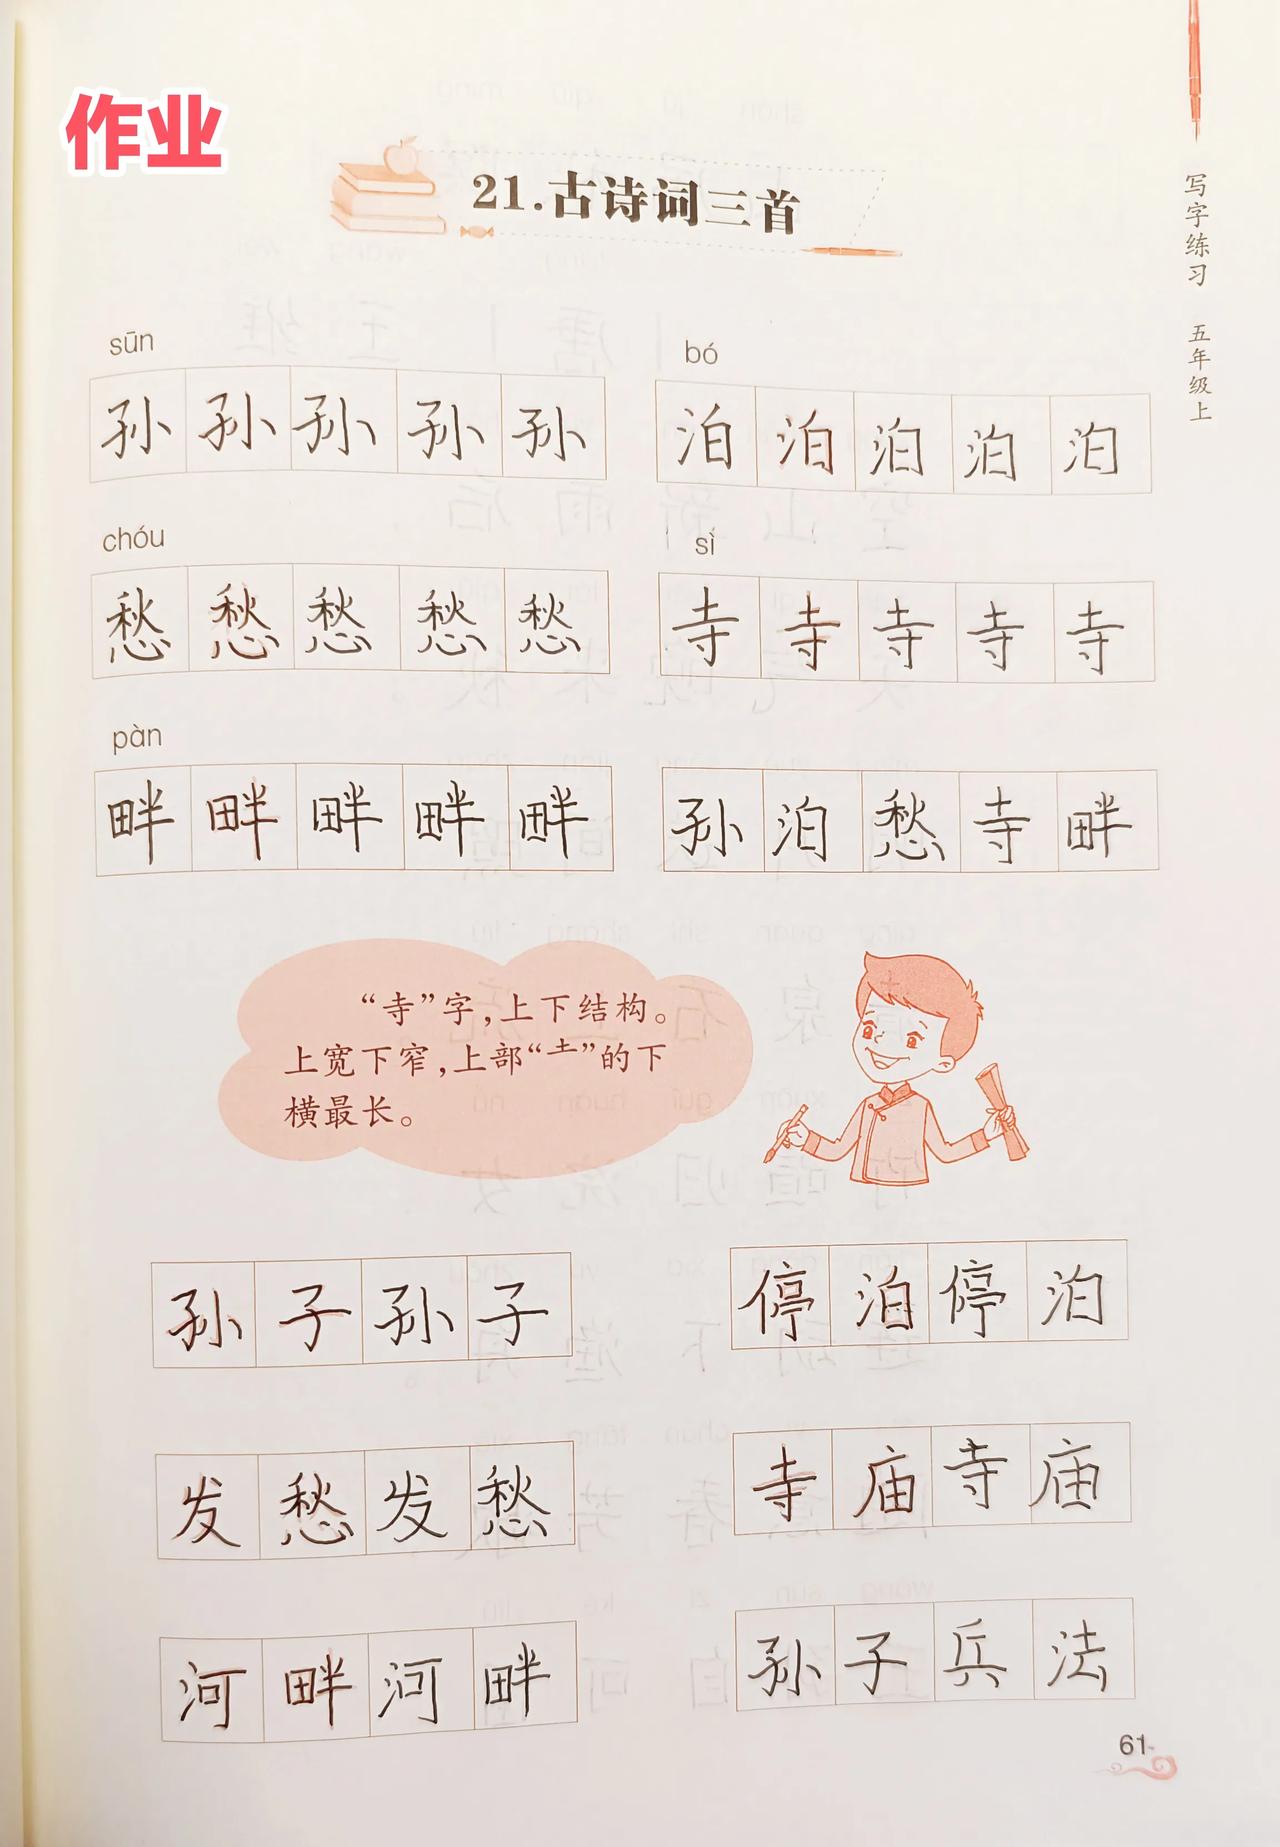 作业
21.古诗词三首
写字练习 五年级上
sūn bó
孙孙孙孙孙 泊泊泊泊泊
chóu sì
愁愁愁愁愁 寺寺寺寺寺
pàn
畔畔畔畔畔 孙泊愁寺畔
“寺”字,上下结构。
上宽下窄,上部“龶”的下
横最长。
孙子孙子 停泊停泊
发愁发愁 寺庙寺庙
河畔河畔 孙子兵法
61